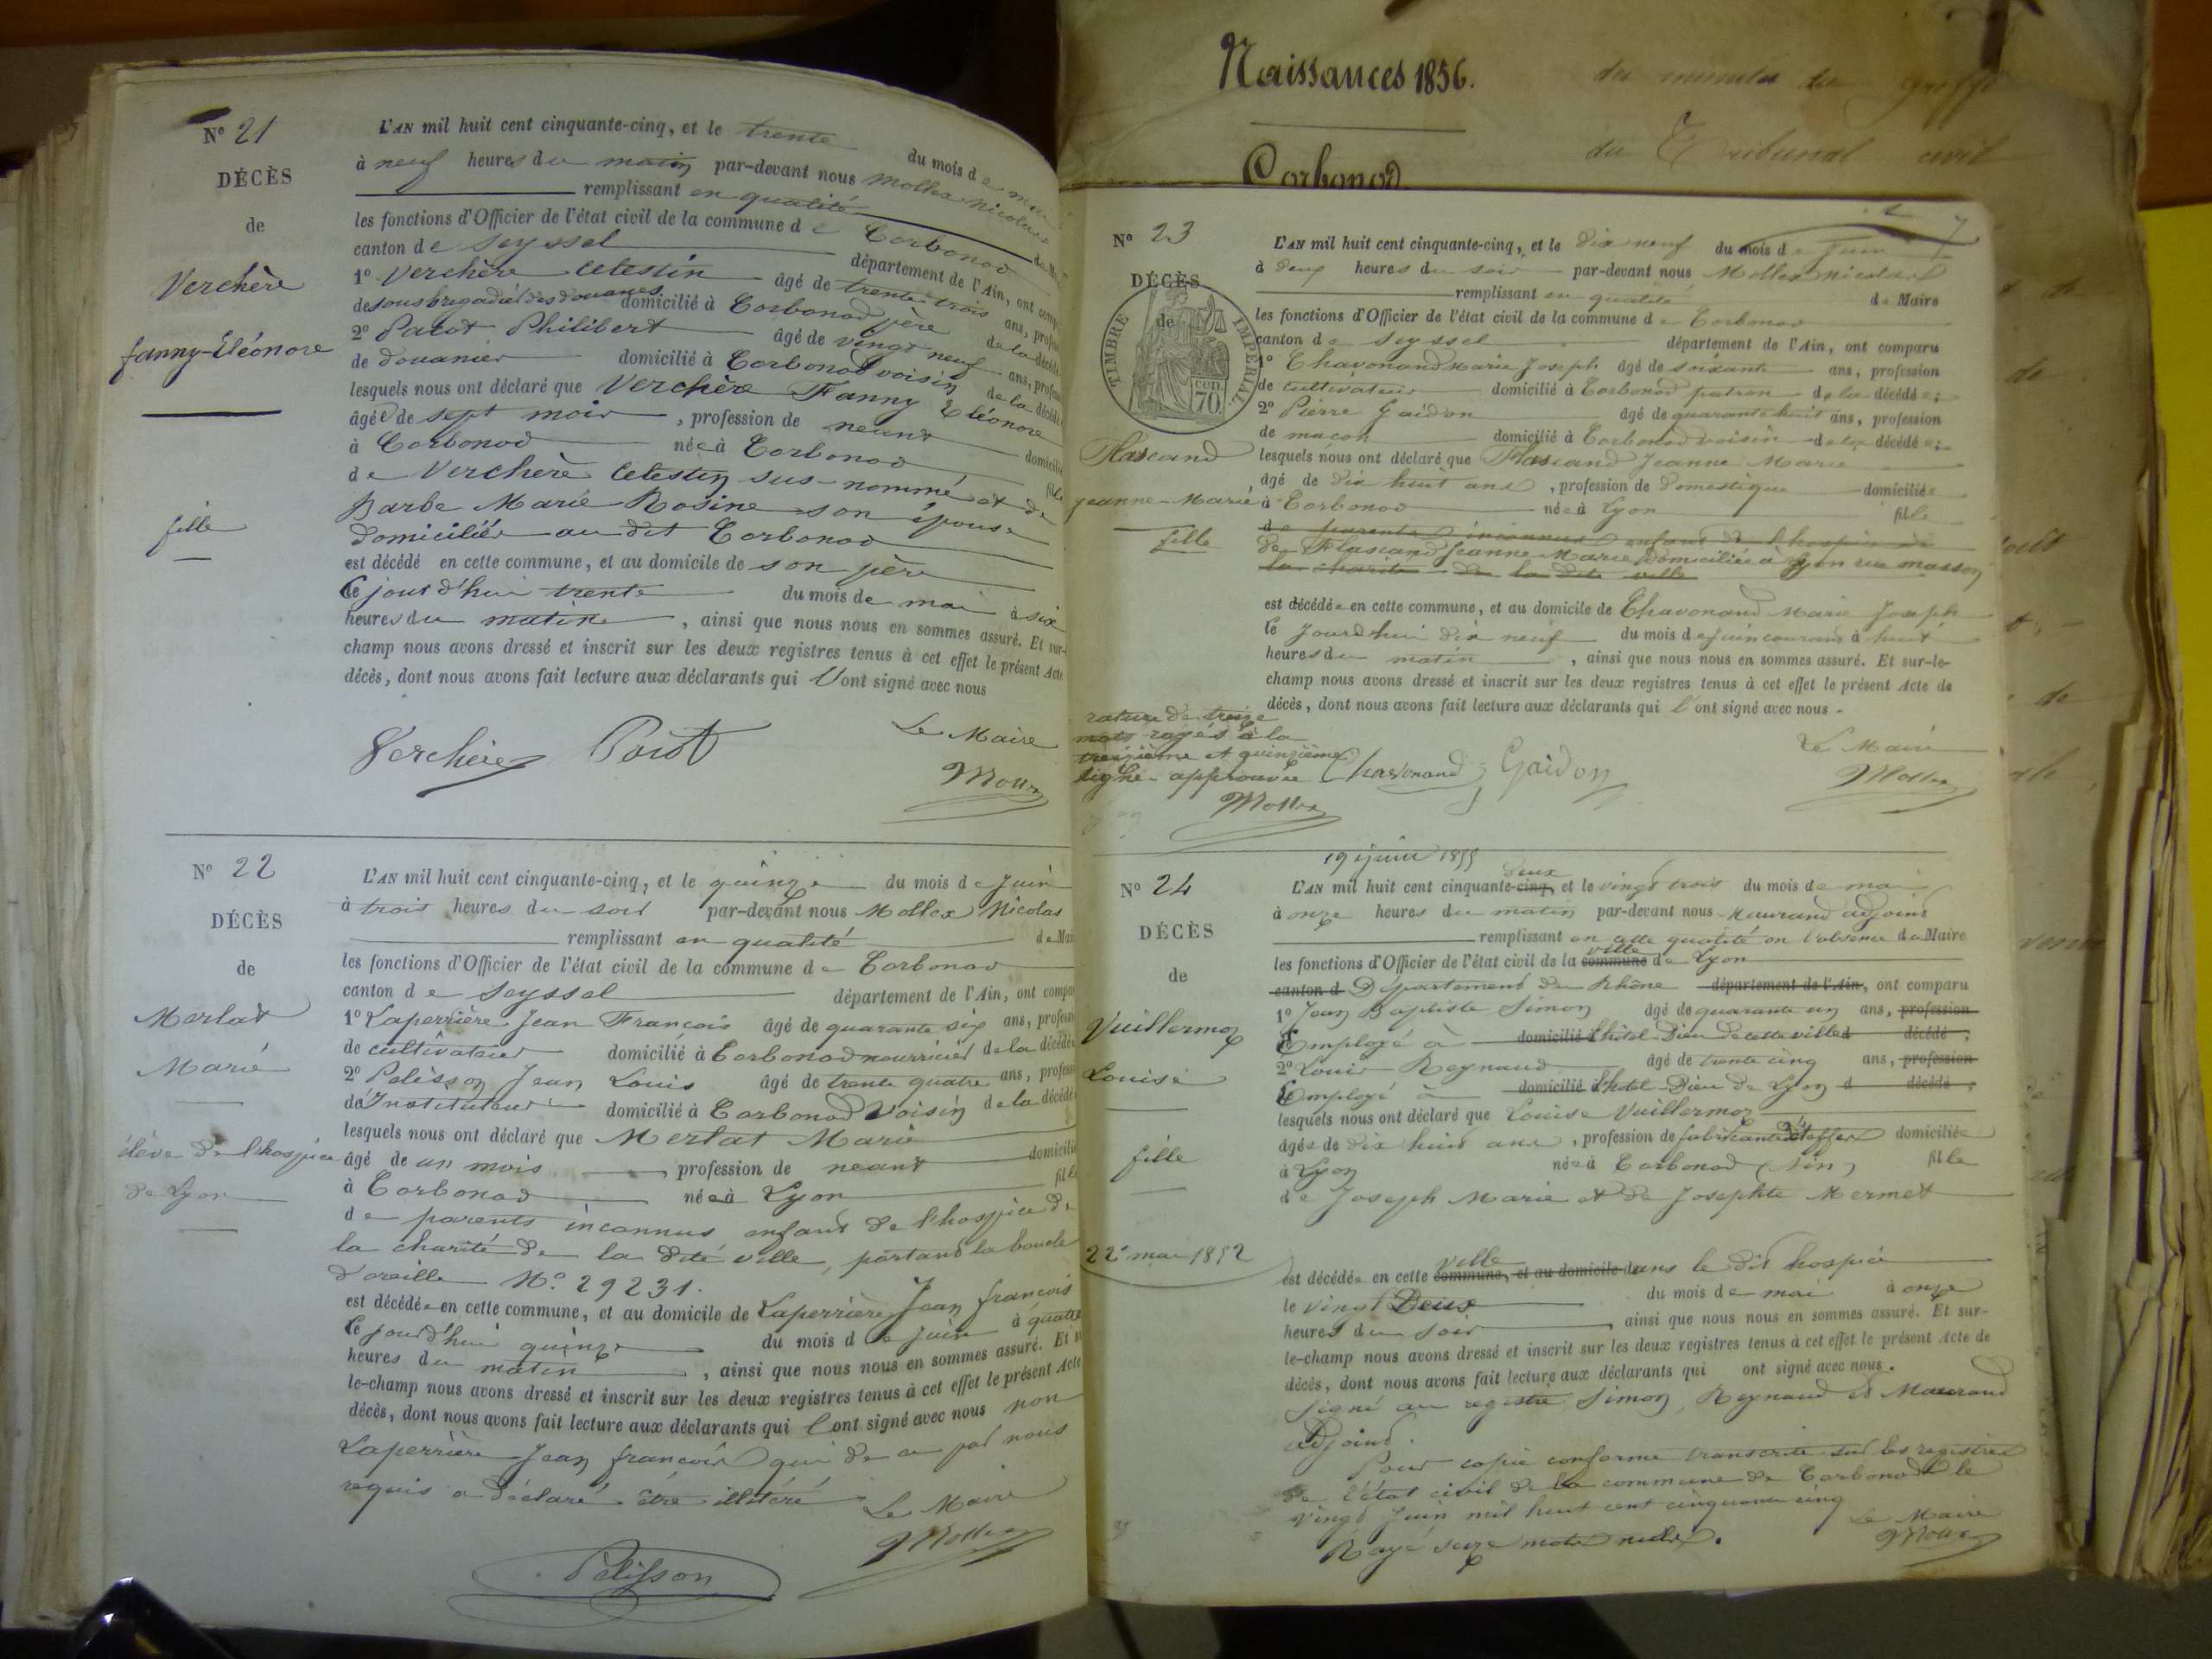 Nº 21
DÉCÈS
de
Verchère
fanny-Eléonore
fille
L'AN mil huit cent cinquante-cinq, et le trente du mois de mai
à neuf heures du matin par-devant nous Mollex Nicolas
remplissant en qualité
les fonctions d'Officier de l'état civil de la commune de Corbonod
canton de Seyssel département de l'Ain, ont comp
1º Verchère Celestin âgé de trente trois ans, profes
de sous brigadier des douanes domicilié à Corbonod père de la décédé
2º Parot Philibert âgé de vingt neuf ans, profes
de douanier domicilié à Corbonod voisin de la décédé
lesquels nous ont déclaré que Verchère Fanny Eléonore
âgée de sept mois, profession de neant domicilié
à Corbonod née à Corbonod fille
de Verchère Celestin sus-nommé et de
Barbe Marie Rosine son épouse
domiciliés au dit Corbonod
est décédé en cette commune, et au domicile de son père
le jourd'hui trente du mois de mai à six
heures du matin, ainsi que nous nous en sommes assuré. Et sur-
champ nous avons dressé et inscrit sur les deux registres tenus à cet effet le présent Acte
décès, dont nous avons fait lecture aux déclarants qui l'ont signé avec nous
Le Maire
Verchère
Nº 22
DÉCÈS
de
Merlat
Marie
élève de l'hospice
de Lyon
L'AN mil huit cent cinquante-cinq, et le quinze du mois de Juin
à trois heures du soir par-devant nous Mollex Nicolas
remplissant en qualité de Mai
les fonctions d'Officier de l'état civil de la commune de Corbonod
canton de Seyssel département de l'Ain, ont compa
1º Laperrière Jean François âgé de quarante six ans, profess
de cultivateur domicilié à Corbonod nourricier de la décédé
2º Pelisson Jean Louis âgé de trente quatre ans, profess
de Instituteur domicilié à Corbonod Voisin de la décédé
lesquels nous ont déclaré que Merlat Marie
âgé de un mois profession de neant domicilié
à Corbonod née à Lyon fille
de parents inconnus enfant de l'hospice de
la charité de la dite ville, portant la boucle
d'oreille Nº 29231.
est décédée en cette commune, et au domicile de Laperrière Jean françois
le jourd'hui quinze du mois de Juin à quatre
heures du matin, ainsi que nous nous en sommes assuré. Et s
le-champ nous avons dressé et inscrit sur les deux registres tenus à cet effet le présent Acte
décès, dont nous avons fait lecture aux déclarants qui l'ont signé avec nous non
Laperrière Jean françois qui de ce par nous
requis a déclaré être illitéré
Le Maire
Pélisson
Naissances 1856.
des minutes du greffe
du Tribunal civil
Corbonod
Nº 23
DÉCÈS
de
TIMBRE IMPERIAL
70 cen
Flascand
Jeanne-Marie
fille
L'AN mil huit cent cinquante-cinq, et le dix neuf du mois de Juin
à deux heures du soir par-devant nous Mollex Nicolas
remplissant en qualité de Maire
les fonctions d'Officier de l'état civil de la commune de Corbonod
canton de Seyssel département de l'Ain, ont comparu
1º Chavonand Marie Joseph âgé de soixante ans, profession
de cultivateur domicilié à Corbonod patron de la décédée;
2º Pierre Gaidon âgé de quarante huit ans, profession
de maçon domicilié à Corbonod voisin de la décédée;
lesquels nous ont déclaré que Flascand Jeanne Marie
âgé de dix huit ans, profession de domestique domiciliée
à Corbonod née à Lyon fille
de parents inconnus enfant de l'hospice de
de Flascand Jeanne Marie Domiciliée à Lyon rue masson
la charité de la dite ville
est décédée en cette commune, et au domicile de Chavonand Marie Joseph
le Jourdhui dix neuf du mois de Juin courant à huit
heures du matin, ainsi que nous nous en sommes assuré. Et sur-le-
champ nous avons dressé et inscrit sur les deux registres tenus à cet effet le présent Acte de
décès, dont nous avons fait lecture aux déclarants qui l'ont signé avec nous.
rature de treize
mots rayés à la
treizième et quinzième
ligne approuvée
Le Maire
Chavonand Gaidon
19 juin 1855
Nº 24
DÉCÈS
de
Vuillermoz
Louise
fille
22 mai 1852
deux
L'AN mil huit cent cinquante-cinq, et le vingt trois du mois de mai
à onze heures du matin par-devant nous Maurand adjoint
remplissant en cette qualité en l'absence du Maire
ville
les fonctions d'Officier de l'état civil de la commune de Lyon
canton d Département du Rhône département de l'Ain, ont comparu
1º Jean Baptiste Simon âgé de quarante un ans, profession
Employé à domicilié l'hôtel-Dieu de cette ville d décédé;
2º Louis Reynaud âgé de trente cinq ans, profession
Employé à domicilié l'hotel-Dieu de Lyon d décédé;
lesquels nous ont déclaré que Louise Vuillermoz
âgée de dix huit ans, profession de fabricante d'étoffes domiciliée
à Lyon née à Corbonod (Ain) fille
de Joseph Marie et de Josephte Mermet
ville
est décédée en cette commune, et au domicile dans le dit hospice
le vingt Deux du mois de mai à onze
heures du soir, ainsi que nous nous en sommes assuré. Et sur-
le-champ nous avons dressé et inscrit sur les deux registres tenus à cet effet le présent Acte de
décès, dont nous avons fait lecture aux déclarants qui ont signé avec nous.
Signé au registre Simon, Reynaud et Maurand
Adjoint.
Pour copie conforme transcrite sur les registres
de l'état civil de la commune de Corbonod le
vingt Juin mil huit cent cinquante cinq
Le Maire
Rayé seize mots nuls.